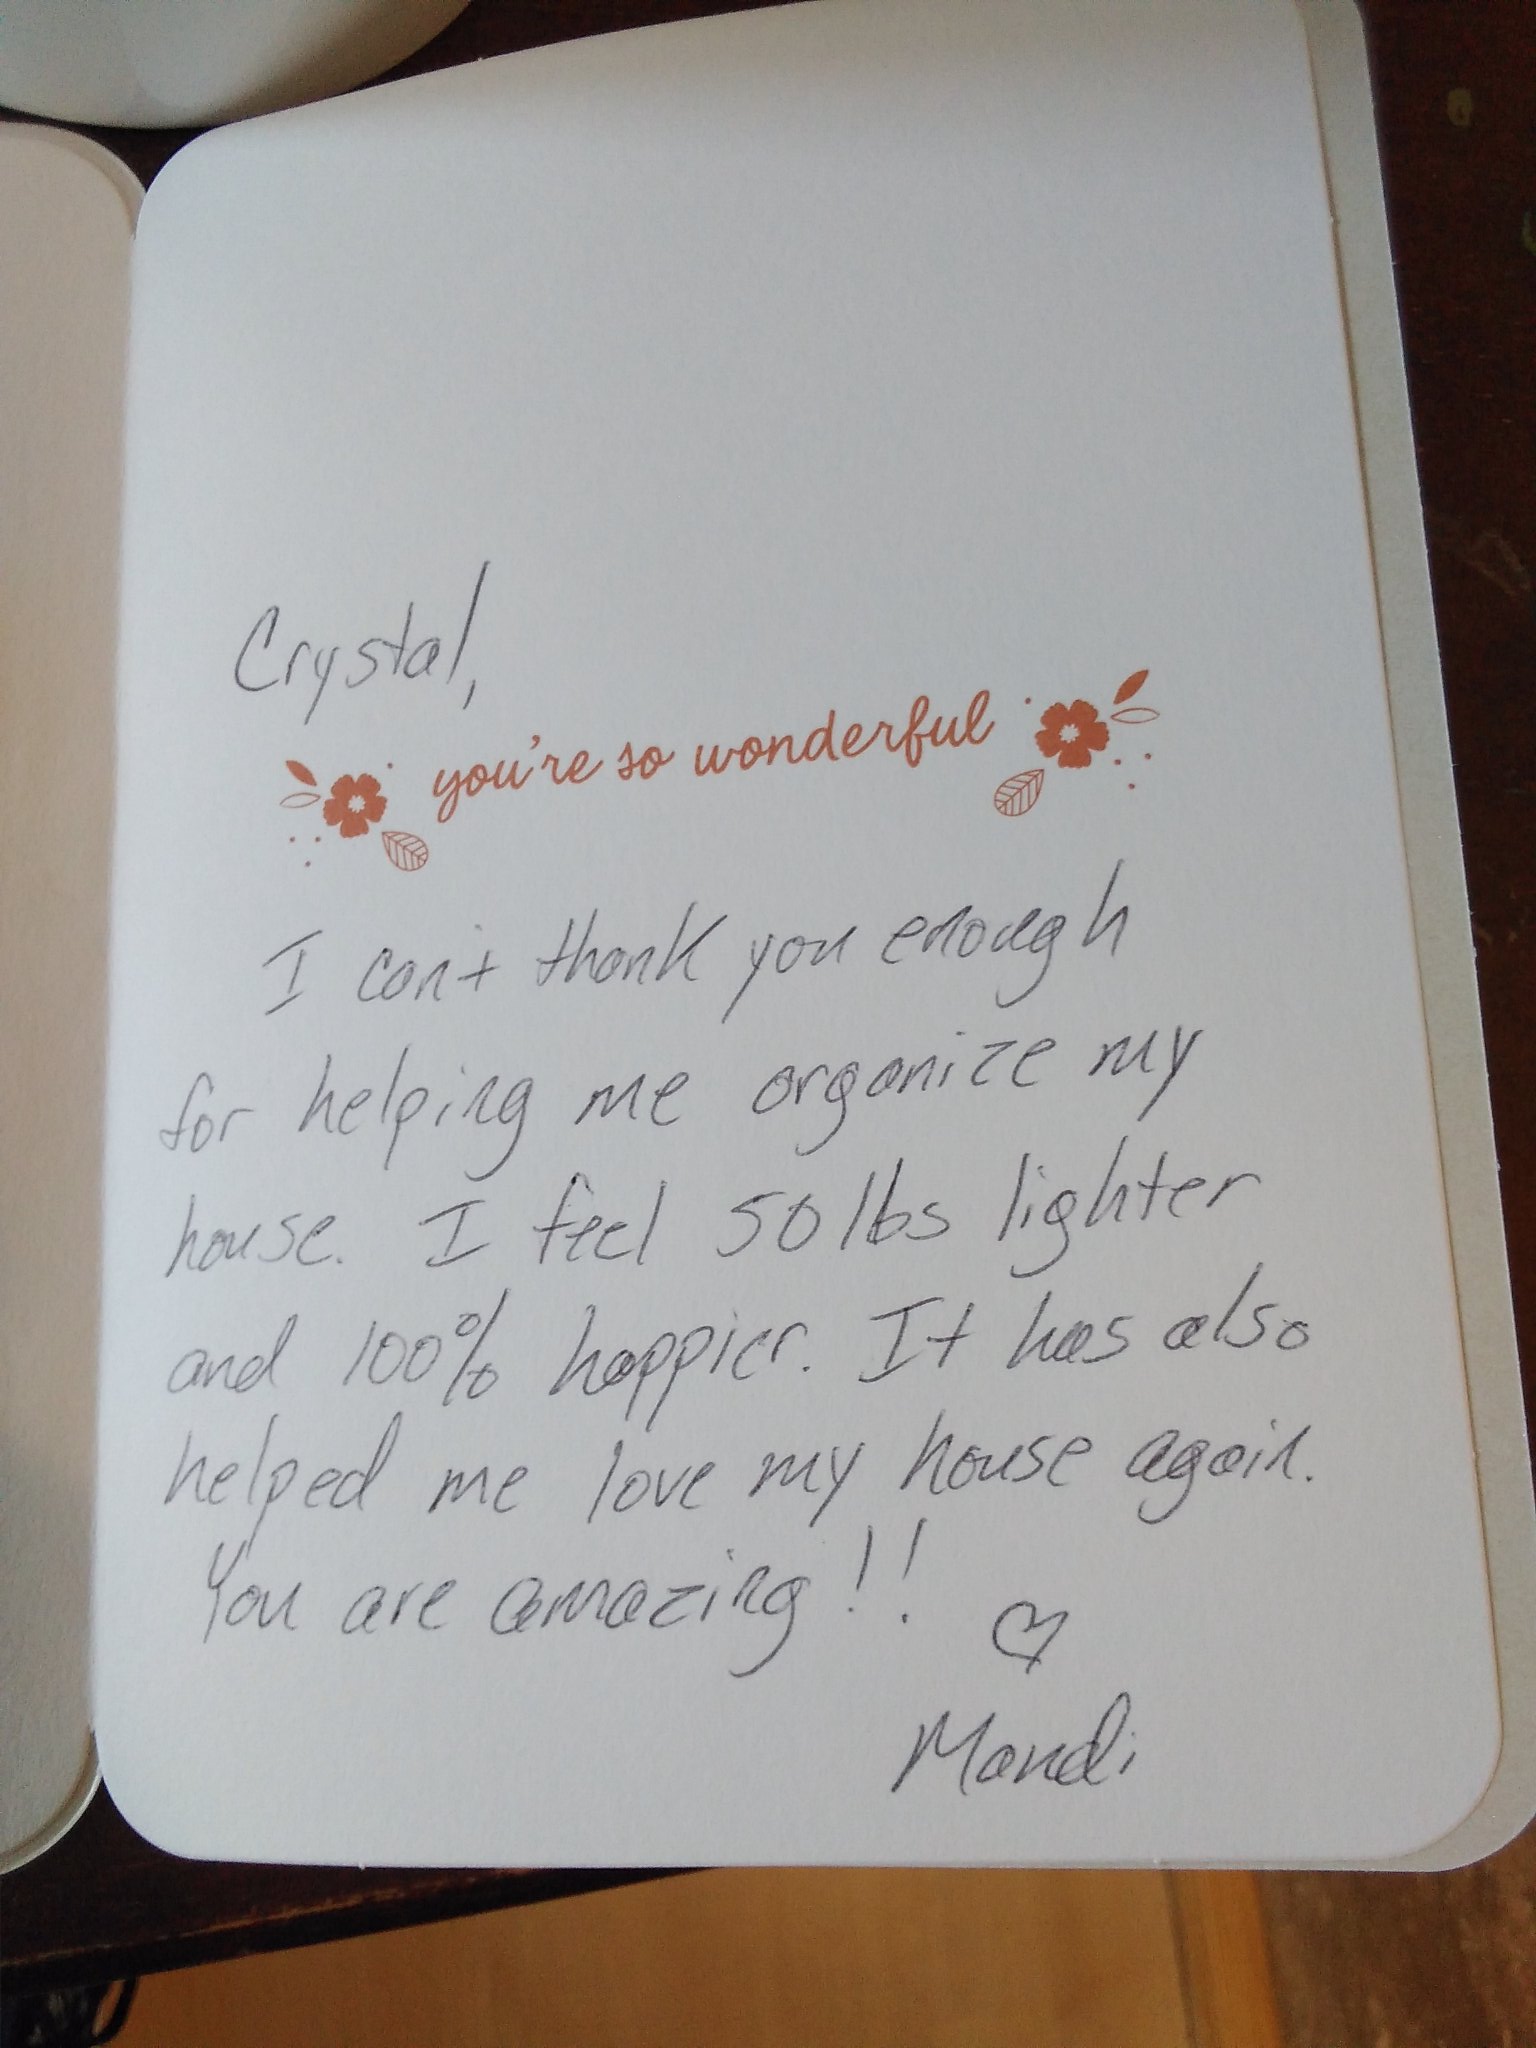 Crystal,
you're so wonderful
I can't thank you enough
for helping me organize my
house. I feel 50 lbs lighter
and 100% happier. It has also
helped me love my house again.
You are amazing!!
Mandi